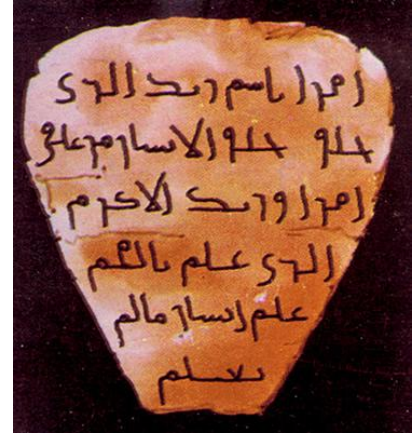 اقرا باسم ربك الذي
خلق خلق الانسان من علق
اقرا وربك الاكرم
الذي علم بالقلم
علم انسان مالم
يعلم